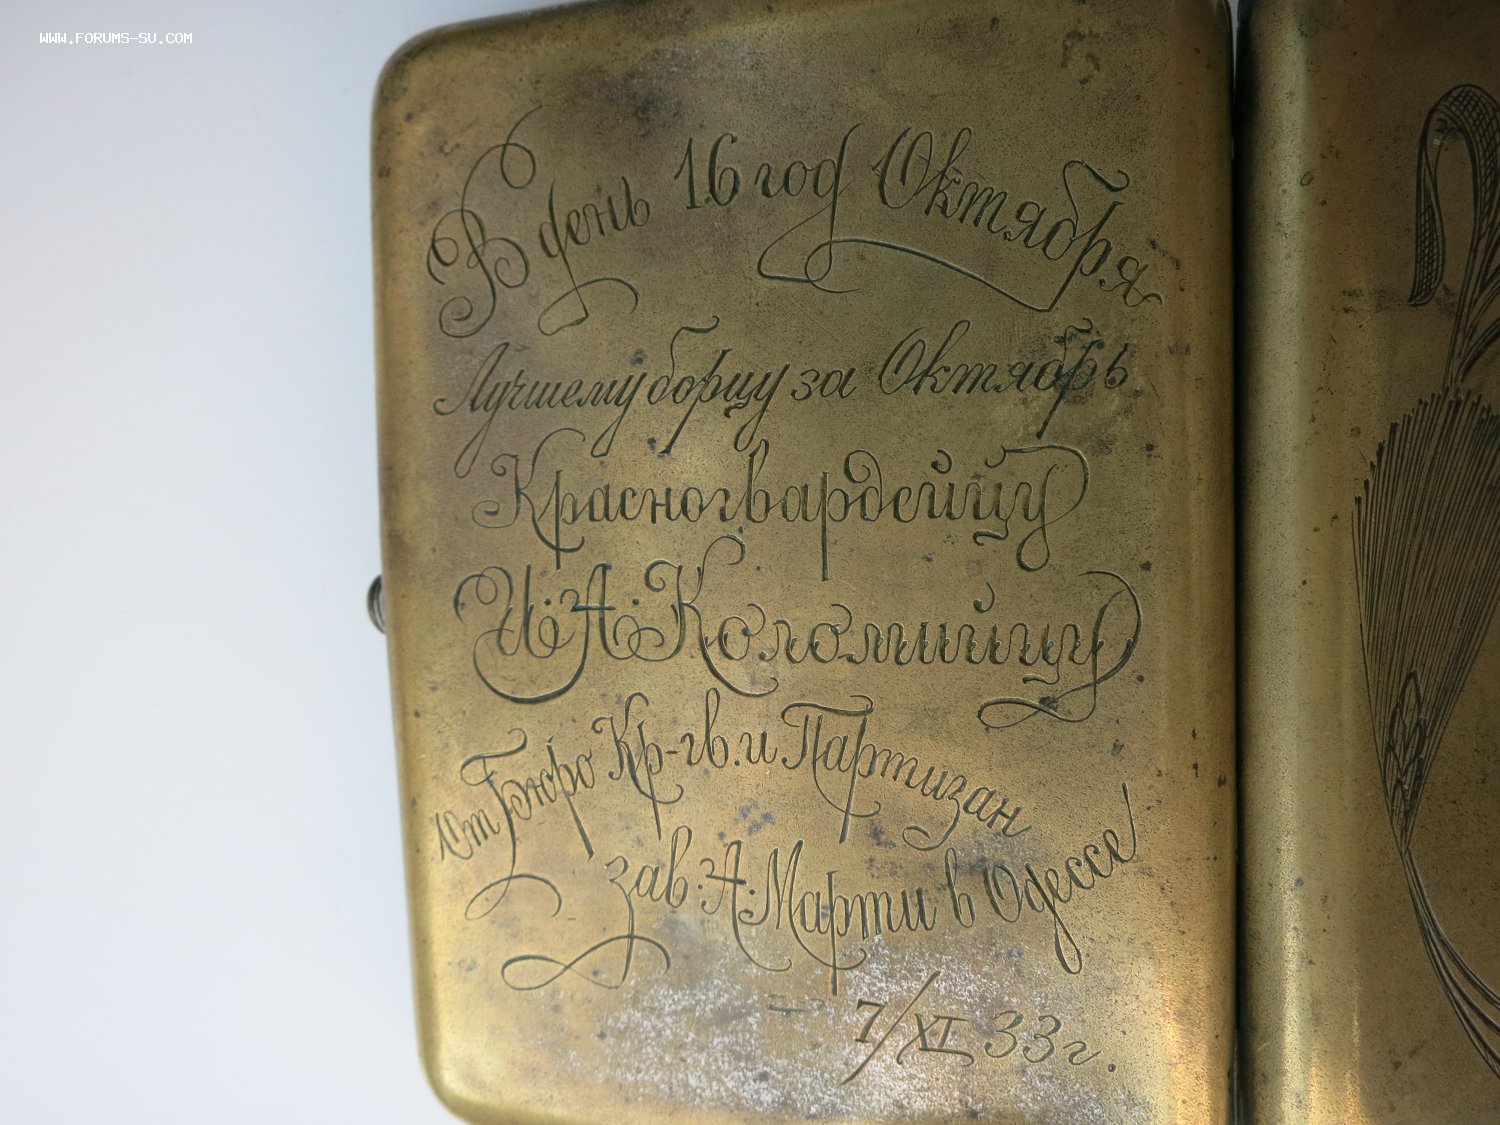 WWW.FORUMS-SU.COM
В день 16 год Октября
Лучшему борцу за Октябрь
Красногвардейцу
И. А. Коломийцу
От Бюро Кр-гв. и Партизан
зав. А. Марти в Одессе
7/XI 33 г.